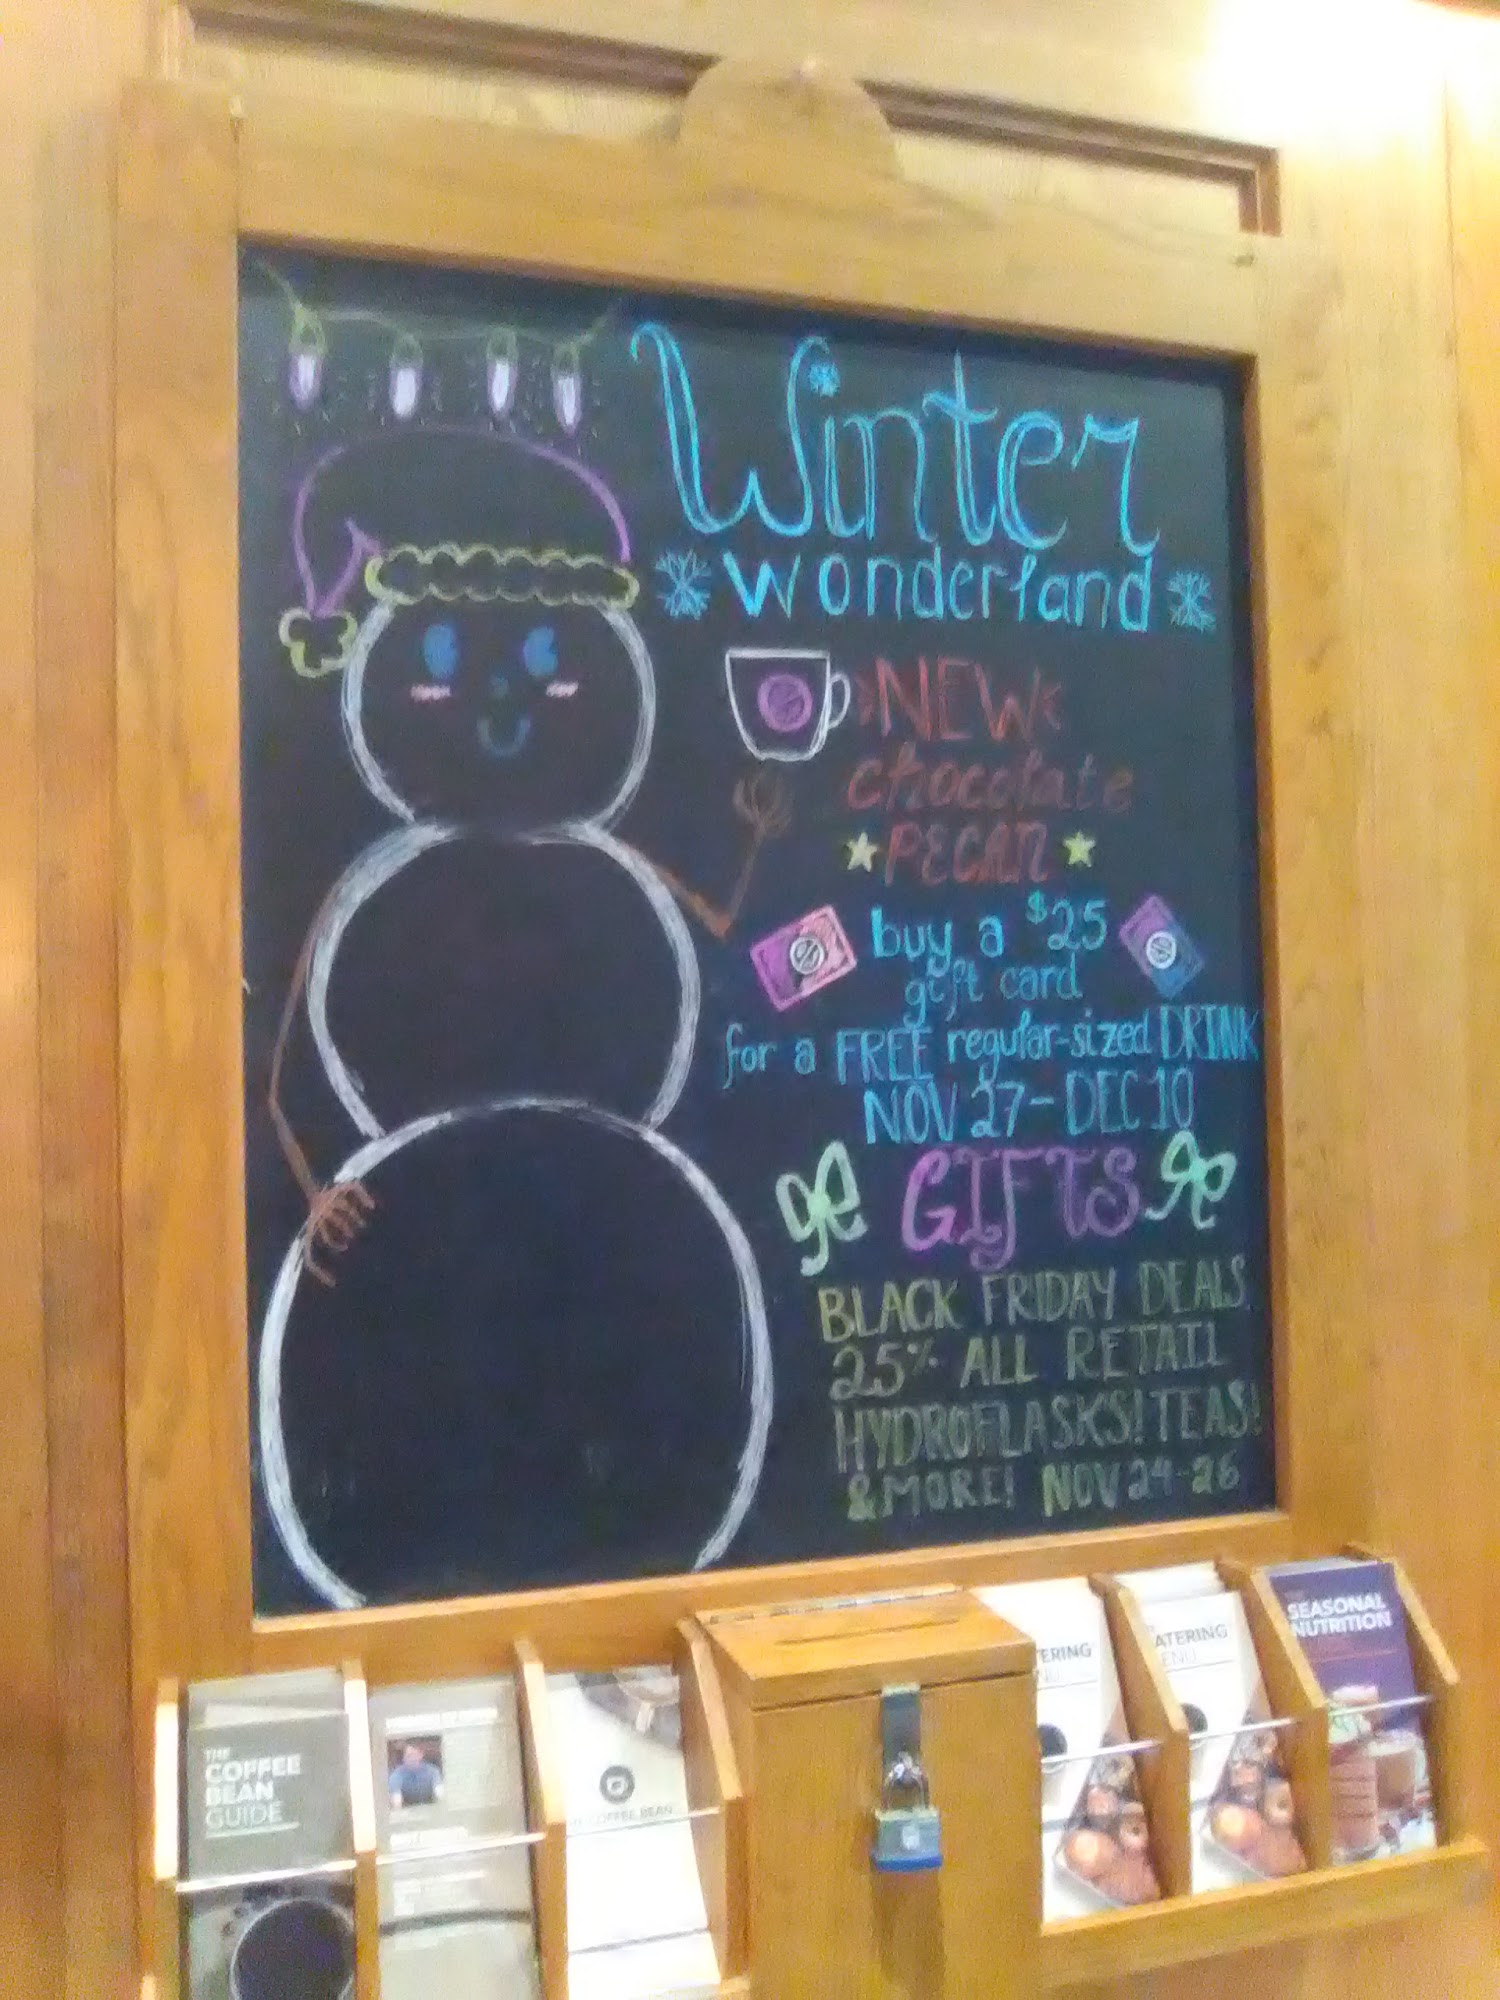 Winter
wonderland
NEW
chocolate
PECAN
buy a $25
gift card
for a FREE regular-sized DRINK
NOV 27-DEC 10
GIFTS
BLACK FRIDAY DEALS
25% ALL RETAIL
HYDROFLASKS! TEAS!
& MORE! NOV 24-26
THE
COFFEE
BEAN
GUIDE
COFFEE BEAN
TERING
ATERING
ENU
SEASONAL
NUTRITION